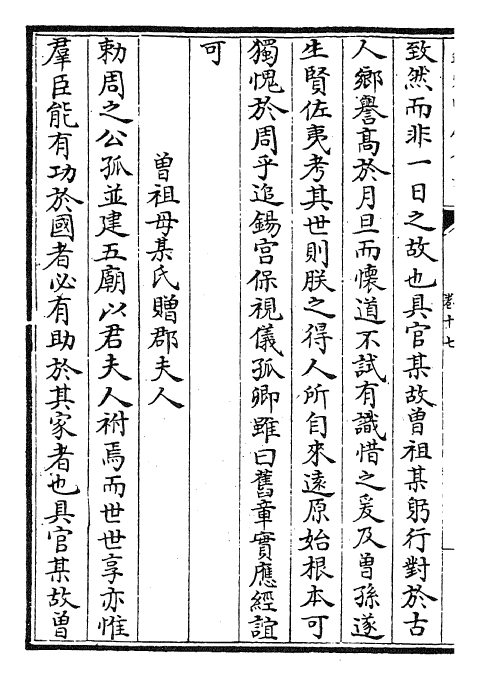 卷十七
致然而非一日之故也具官某故曾祖某躬行對於古
人鄉譽高於月旦而懷道不試有識惜之爰及曾孫遂
生賢佐夷考其世則朕之得人所自來遠原始根本可
獨愧於周乎追錫宫保視儀孤卿雖曰舊章實應經誼
可
曾祖母某氏贈郡夫人
勅周之公孤並建五廟以君夫人祔焉而世世享亦惟
羣臣能有功於國者必有助於其家者也具官某故曾